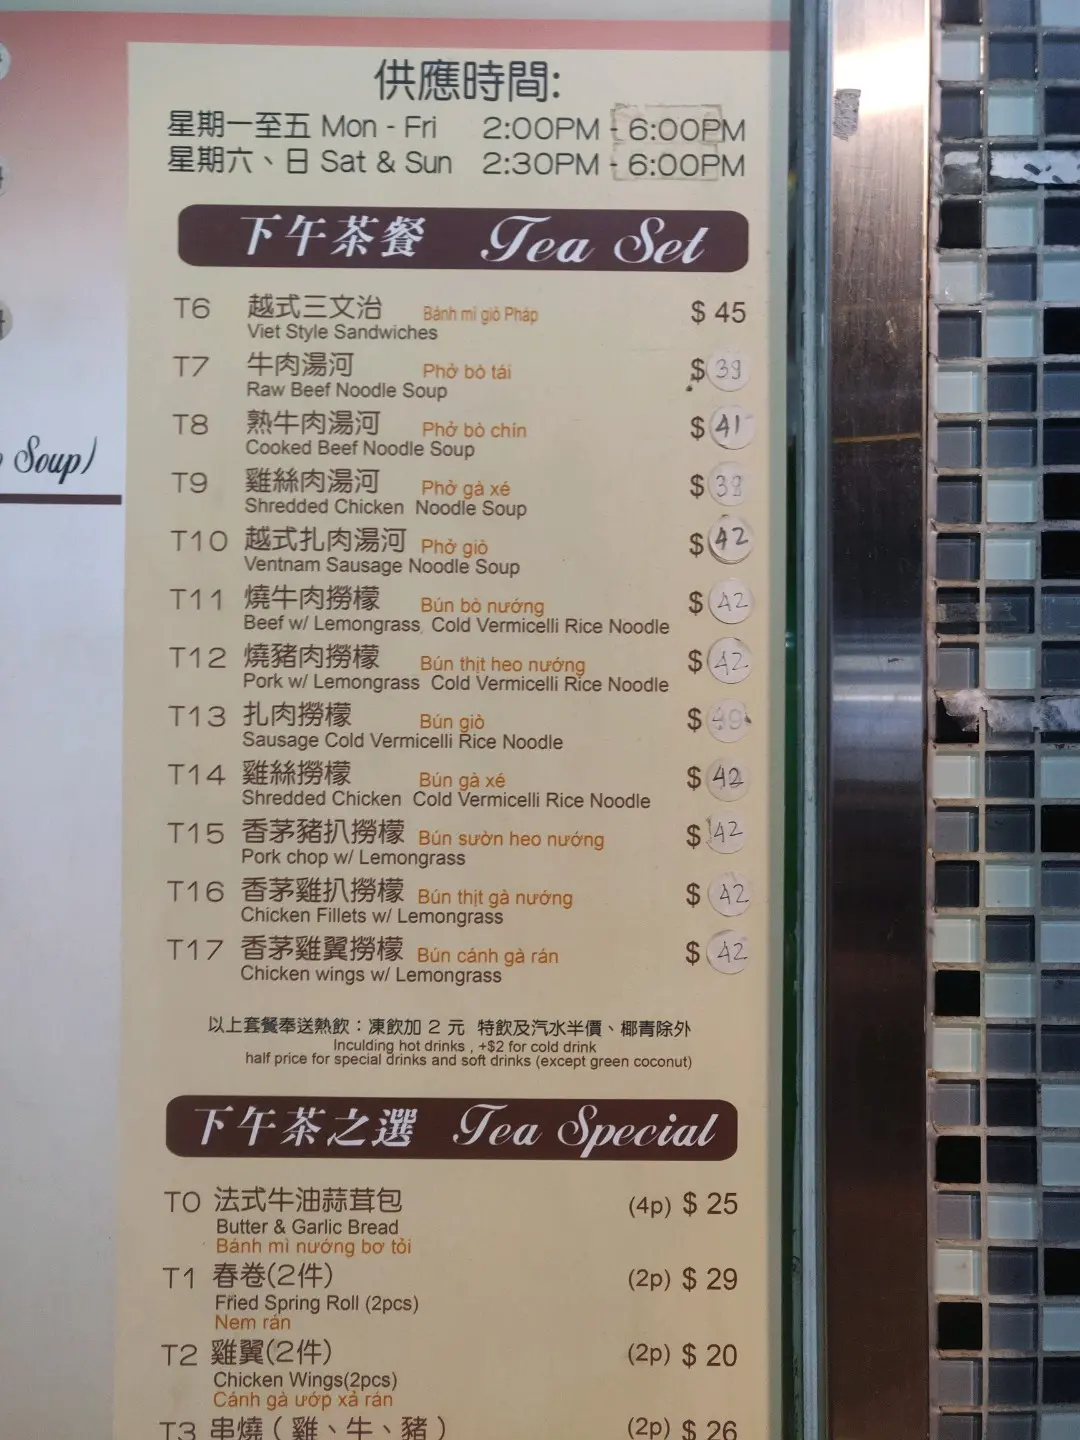 供應時間:
星期一至五 Mon - Fri 2:00PM - 6:00PM
星期六、日 Sat & Sun 2:30PM - 6:00PM
下午茶餐 Tea Set
T6 越式三文治 Bánh mì giò Pháp $ 45
Viet Style Sandwiches
T7 牛肉湯河 Phở bò tái $ 39
Raw Beef Noodle Soup
T8 熟牛肉湯河 Phở bò chín $ 41
Cooked Beef Noodle Soup
Soup)
T9 雞絲肉湯河 Phở gà xé $ 39
Shredded Chicken Noodle Soup
T10 越式扎肉湯河 Phở giò $ 42
Ventnam Sausage Noodle Soup
T11 燒牛肉撈檬 Bún bò nướng $ 42
Beef w/ Lemongrass Cold Vermicelli Rice Noodle
T12 燒豬肉撈檬 Bún thịt heo nướng $ 42
Pork w/ Lemongrass Cold Vermicelli Rice Noodle
T13 扎肉撈檬 Bún giò $
Sausage Cold Vermicelli Rice Noodle
T14 雞絲撈檬 Bún gà xé $ 42
Shredded Chicken Cold Vermicelli Rice Noodle
T15 香茅豬扒撈檬 Bún sườn heo nướng $ 42
Pork chop w/ Lemongrass
T16 香茅雞扒撈檬 Bún thịt gà nướng $ 42
Chicken Fillets w/ Lemongrass
T17 香茅雞翼撈檬 Bún cánh gà rán $ 42
Chicken wings w/ Lemongrass
以上套餐奉送熱飲：凍飲加 2 元 特飲及汽水半價、椰青除外
Inculding hot drinks , +$2 for cold drink
half price for special drinks and soft drinks (except green coconut)
下午茶之選 Tea Special
T0 法式牛油蒜茸包 (4p) $ 25
Butter & Garlic Bread
Bánh mì nướng bơ tỏi
T1 春卷(2件) (2p) $ 29
Fried Spring Roll (2pcs)
Nem rán
T2 雞翼(2件) (2p) $ 20
Chicken Wings(2pcs)
Cánh gà ướp xả rán
T3 串燒 ( 雞、牛、豬 ) (2p) $ 26